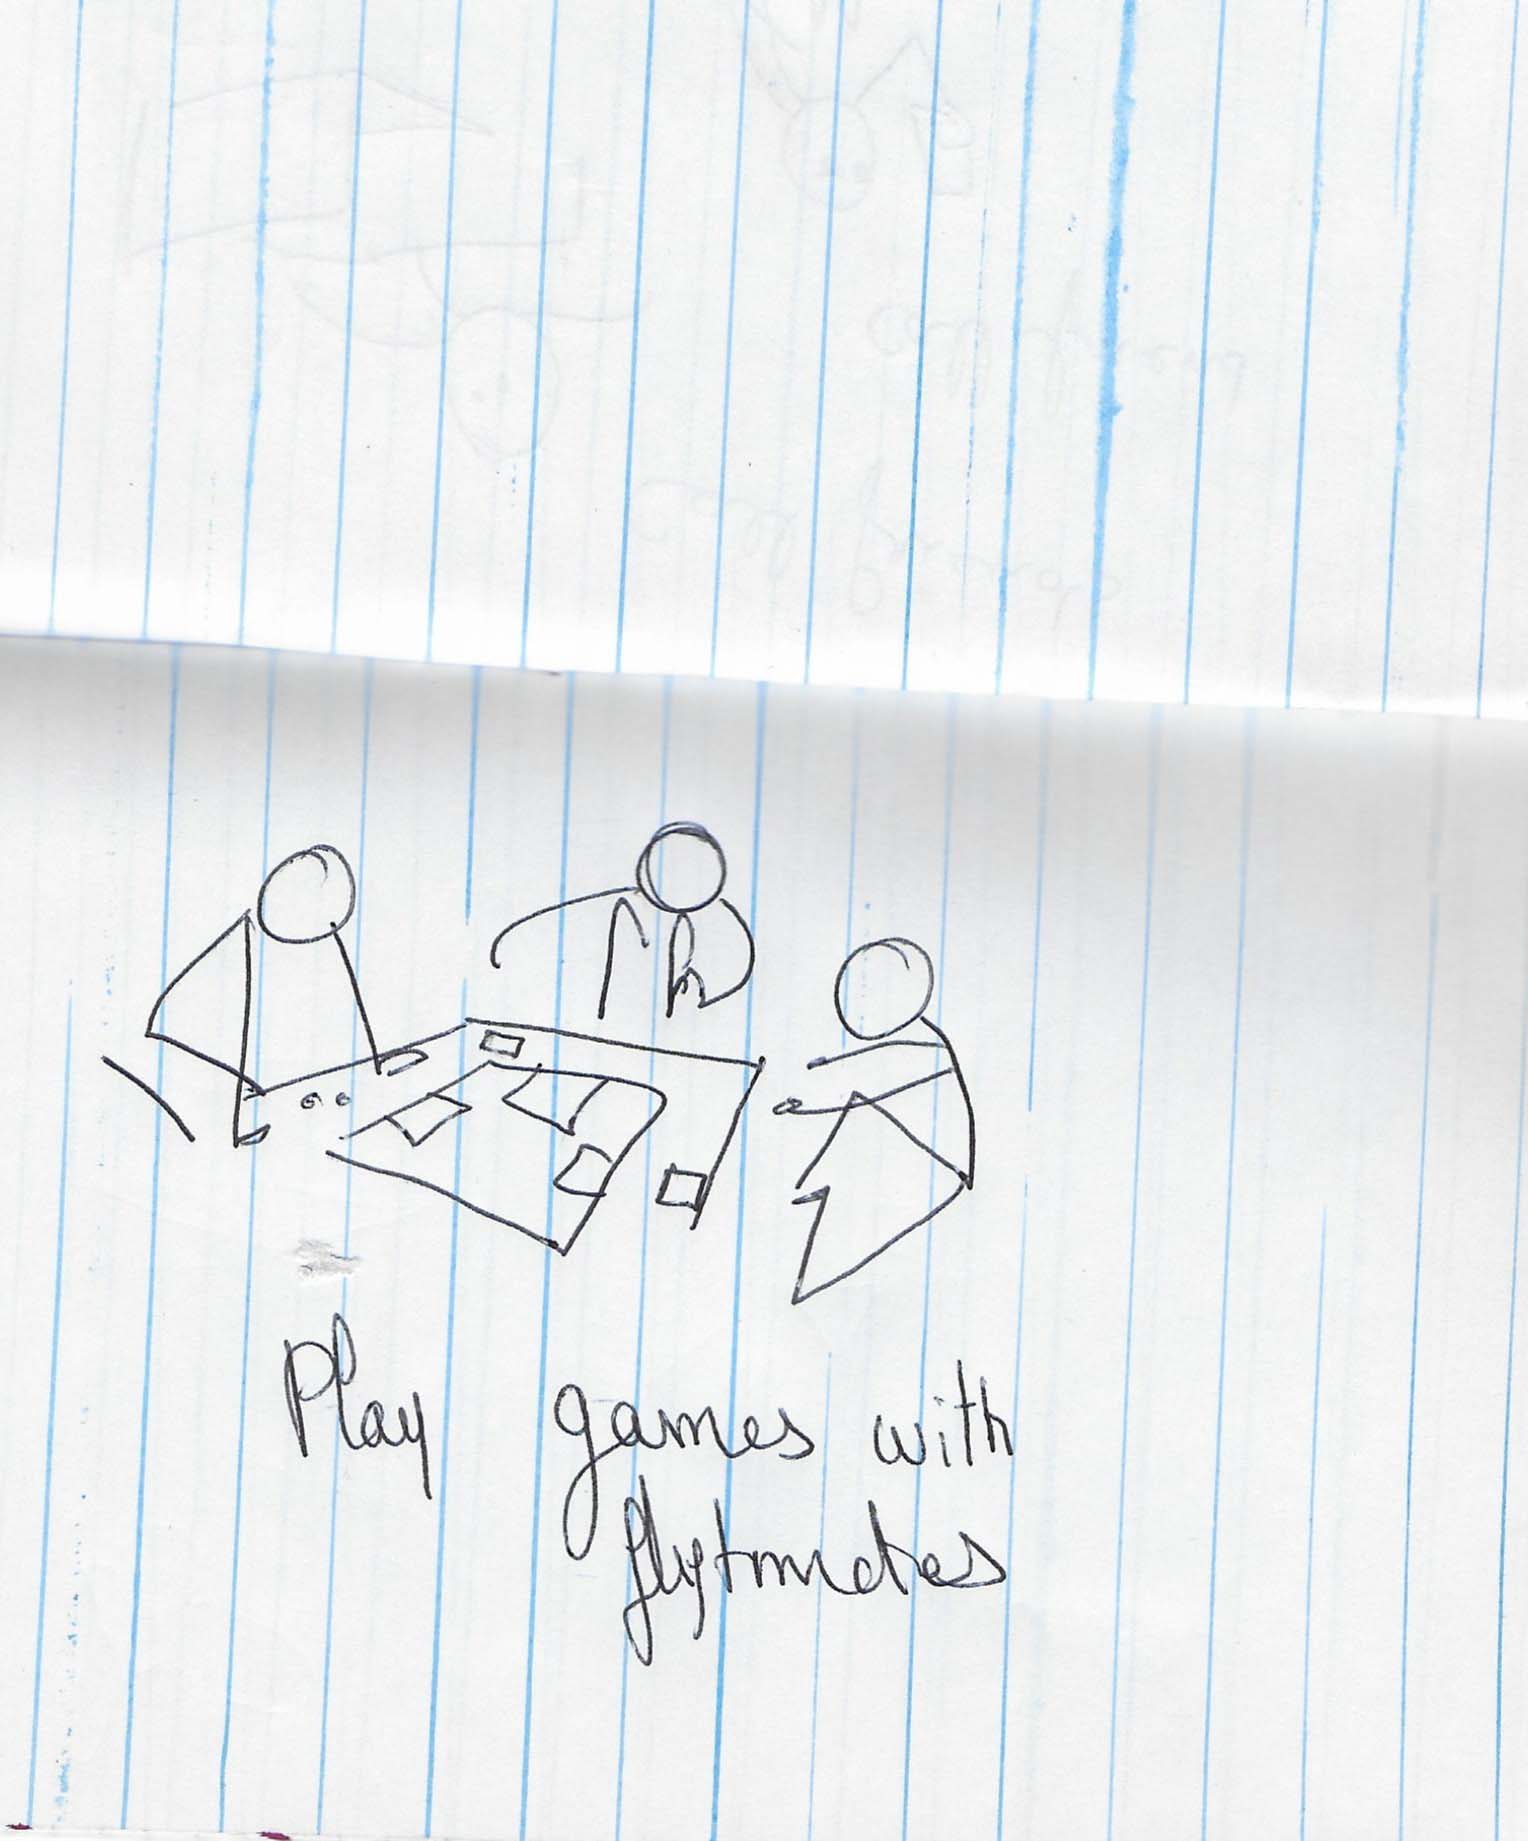 Play games with
flytmates